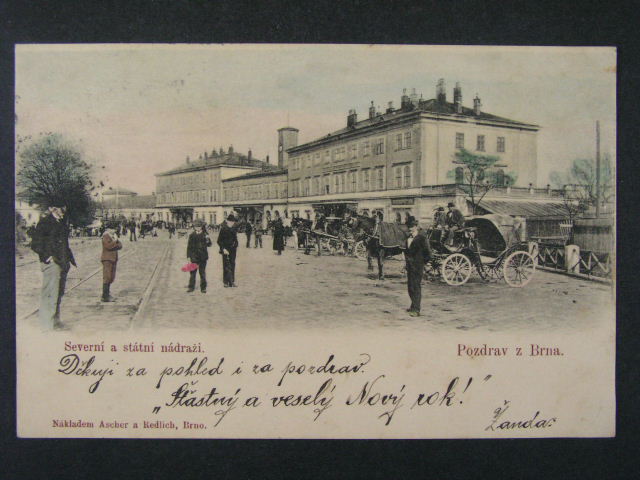 Severní a státní nádraži.
Pozdrav z Brna.
Děkuji za pohled i za pozdrav.
„Šťastný a veselý Nový rok!"
Žanda.
Nákladem Ascher a Redlich, Brno.